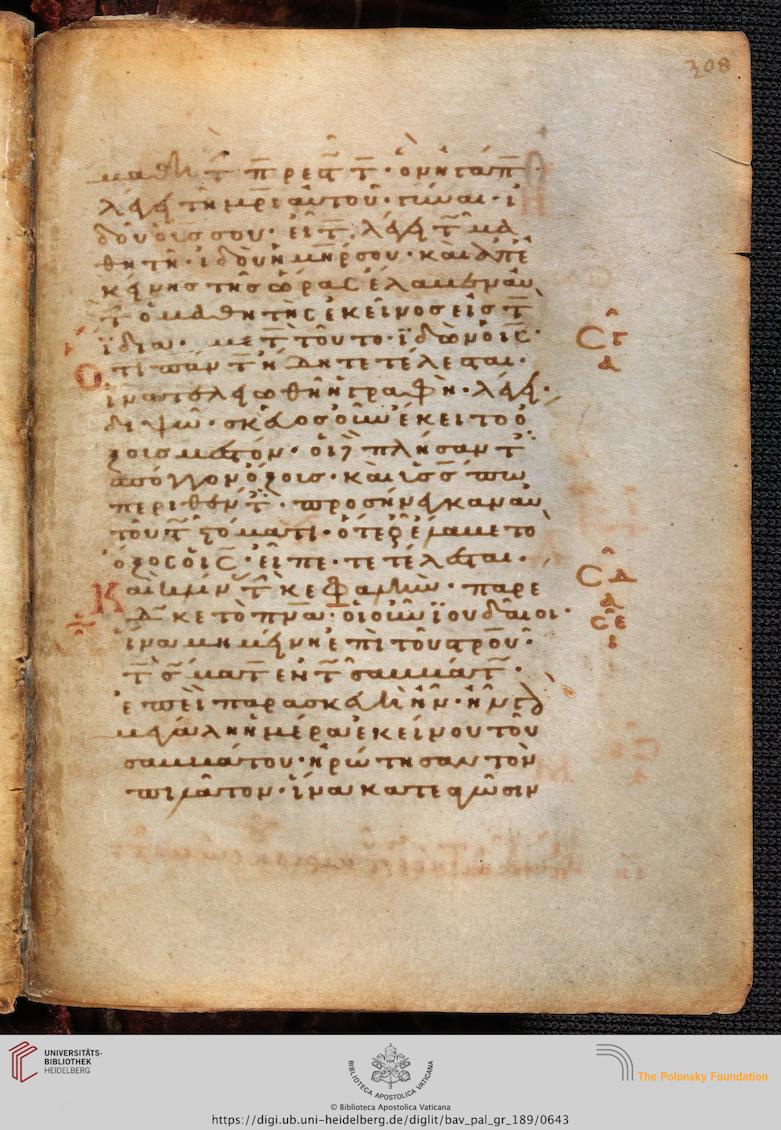 308
μαθητ̅ π̅ρεσ̅τ̅· ὃν ἠγάπ̅
λέγ τῆ μρ̅ὶ αὐτοῦ· γύναι· ἰ
δοὺ ὁ υἱός σου· εἶτ̅ λέγει τ̅ μα
θητῆ· ἰδοὺ ἡ μη̅ρ σου· καὶ ἀπ' ἐ
κείνης τῆς ὥρας ἔλαβεν αὐ
τ̅ ὁ μαθητὴς ἐκεῖνος εἰς τ̅
ἴδια· μετ̅ τοῦτο· ἰδὼν ὁ ις̅·
Ὅτι πάντ̅ ἤδη τετέλεσται·
ἵνα τελειωθῆ ἡ γραφὴ· λέγει·
διψῶ· σκεῦος οὖν ἔκειτο ὄ
ξους μεστόν· οἱ δὲ πλήσαντ̅
σπόγγον ὄξους· καὶ ὑσσώπω
περιθέντ̅· προσήνεγκαν αὐ
τοῦ τ̅ στόματι· ὅτε οὖν ἔλαβε τὸ
ὄξος ὁ ις̅· εἶπε· τετέλεσται·
Καὶ κλίν̅ τ̅ κεφαλὴν· παρέ
δωκε τὸ πνα̅· οἱ οὖν ἰουδαῖοι·
ἵνα μὴ μείνη ἐπὶ τοῦ στρο̅υ̅·
τ̅ σ̅ματ̅ ἐν τ̅ σαββάτ̅·
ἐπεὶ παρασκευὴ ἦν· ἦν γὰρ
μεγάλη ἡ ἡμέρα ἐκείνου τοῦ
σαββάτου· ἠρώτησαν τὸν
πιλᾶτον· ἵνα κατεαγῶσιν
UNIVERSITÄTS-
BIBLIOTHEK
HEIDELBERG
BIBLIOTECA APOSTOLICA VATICANA
The Polonsky Foundation
© Biblioteca Apostolica Vaticana
https://digi.ub.uni-heidelberg.de/diglit/bav_pal_gr_189/0643